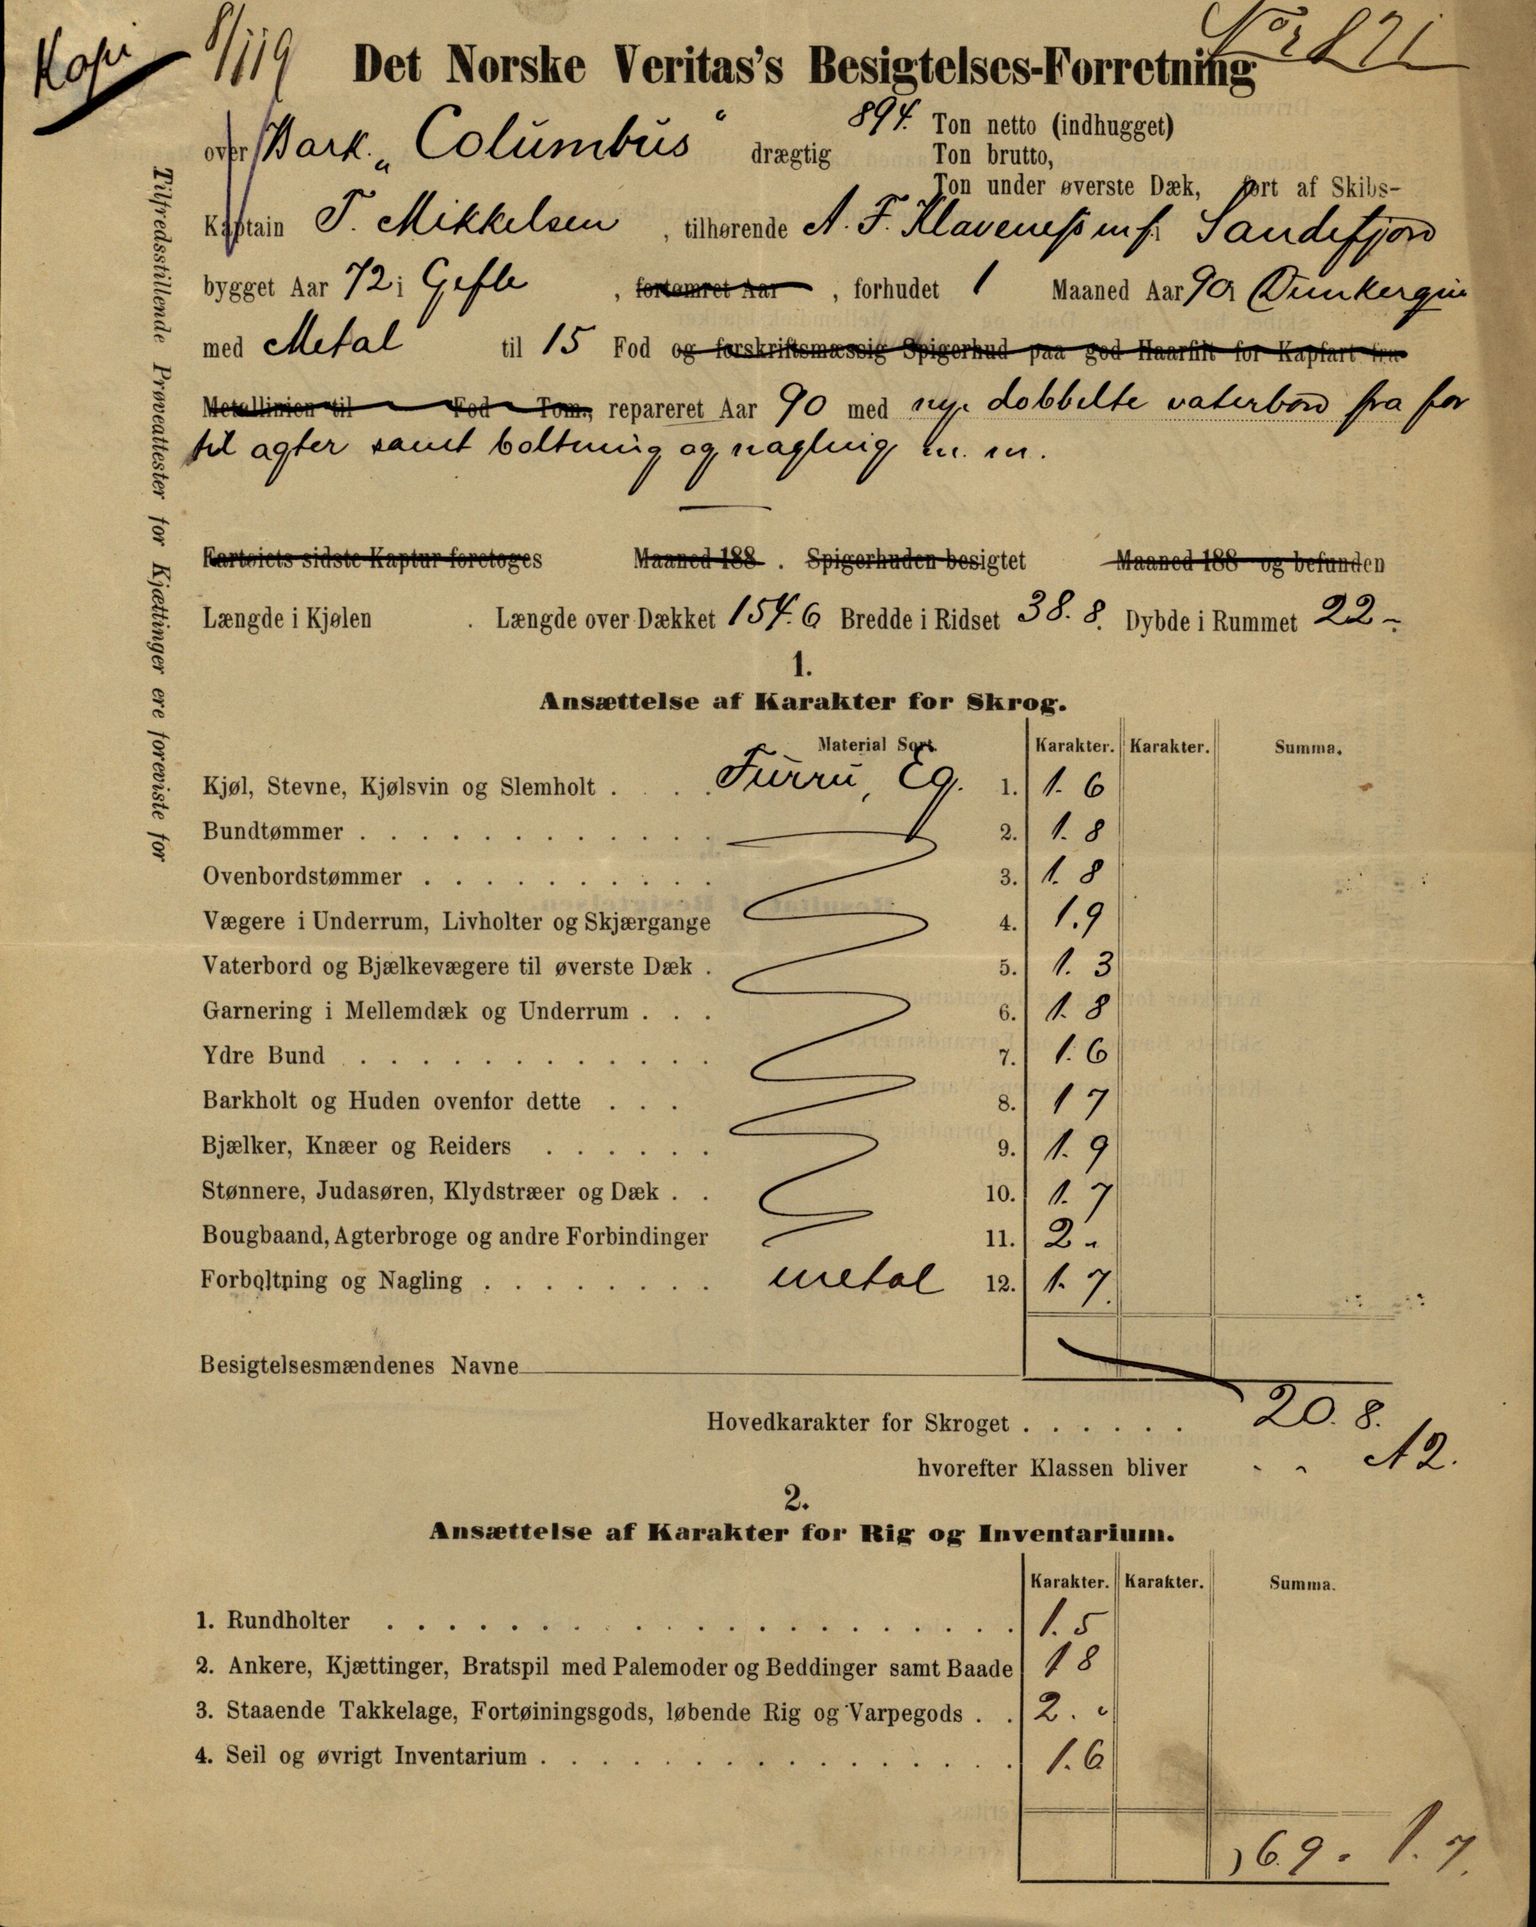 Kopi
8/119
No 2821
Det Norske Veritas's Besigtelses-Forretning
over Bark. „Columbus“ drægtig 894. Ton netto (indhugget)
Ton brutto,
Ton under øverste Dæk, ført af Skibs-
Kaptain T. Mikkelsen, tilhørende A. F. Klaveness m fl Sandefjord
bygget Aar 72 i Gefle, fortømret Aar, forhudet 1 Maaned Aar 90 i Dunkerque
med Metal til 15 Fod og forskriftsmæssig Spigerhud paa god Haarfilt for Kapfart fra
Metallinien til Fod Tom., repareret Aar 90 med nye dobbelte vaterbord fra for
til agter samt boltning og nagling m. m.
Fartøiets sidste Kaptur foretoges Maaned 188 . Spigerhuden besigtet Maaned 188 og befunden
Længde i Kjølen . Længde over Dækket 154.6 Bredde i Ridset 38.8. Dybde i Rummet 22 -.
1.
Ansættelse af Karakter for Skrog.
Material Sort. Karakter. Karakter. Summa.
Kjøl, Stevne, Kjølsvin og Slemholt . . . . Furru, Eg. 1. 1. 6
Bundtømmer . . . . . . . . . . . . 2. 1. 8
Ovenbordstømmer . . . . . . . . . . 3. 1. 8
Vægere i Underrum, Livholter og Skjærgange 4. 1.9
Vaterbord og Bjælkevægere til øverste Dæk . 5. 1. 3
Garnering i Mellemdæk og Underrum . . . 6. 1. 8
Ydre Bund . . . . . . . . . . . . 7. 1. 6
Barkholt og Huden ovenfor dette . . . 8. 1 7
Bjælker, Knæer og Reiders . . . . . . 9. 1. 9
Stønnere, Judasøren, Klydstræer og Dæk . . 10. 1. 7
Bougbaand, Agterbroge og andre Forbindinger 11. 2 -
Forboltning og Nagling . . . . . . . . metal 12. 1. 7.
Besigtelsesmændenes Navne
Hovedkarakter for Skroget . . . . . . 20. 8.
hvorefter Klassen bliver - - A 2.
2.
Ansættelse af Karakter for Rig og Inventarium.
Karakter. Karakter. Summa.
1. Rundholter . . . . . . . . . . . . . . . . . . . . . 1. 5
2. Ankere, Kjættinger, Bratspil med Palemoder og Beddinger samt Baade 1 8
3. Staaende Takkelage, Fortøiningsgods, løbende Rig og Varpegods . . 2. "
4. Seil og øvrigt Inventarium . . . . . . . . . . . . . . . . 1. 6
) 6.9 - 1. 7.
Tilfredsstillende Prøveattester for Kjættinger ere foreviste for